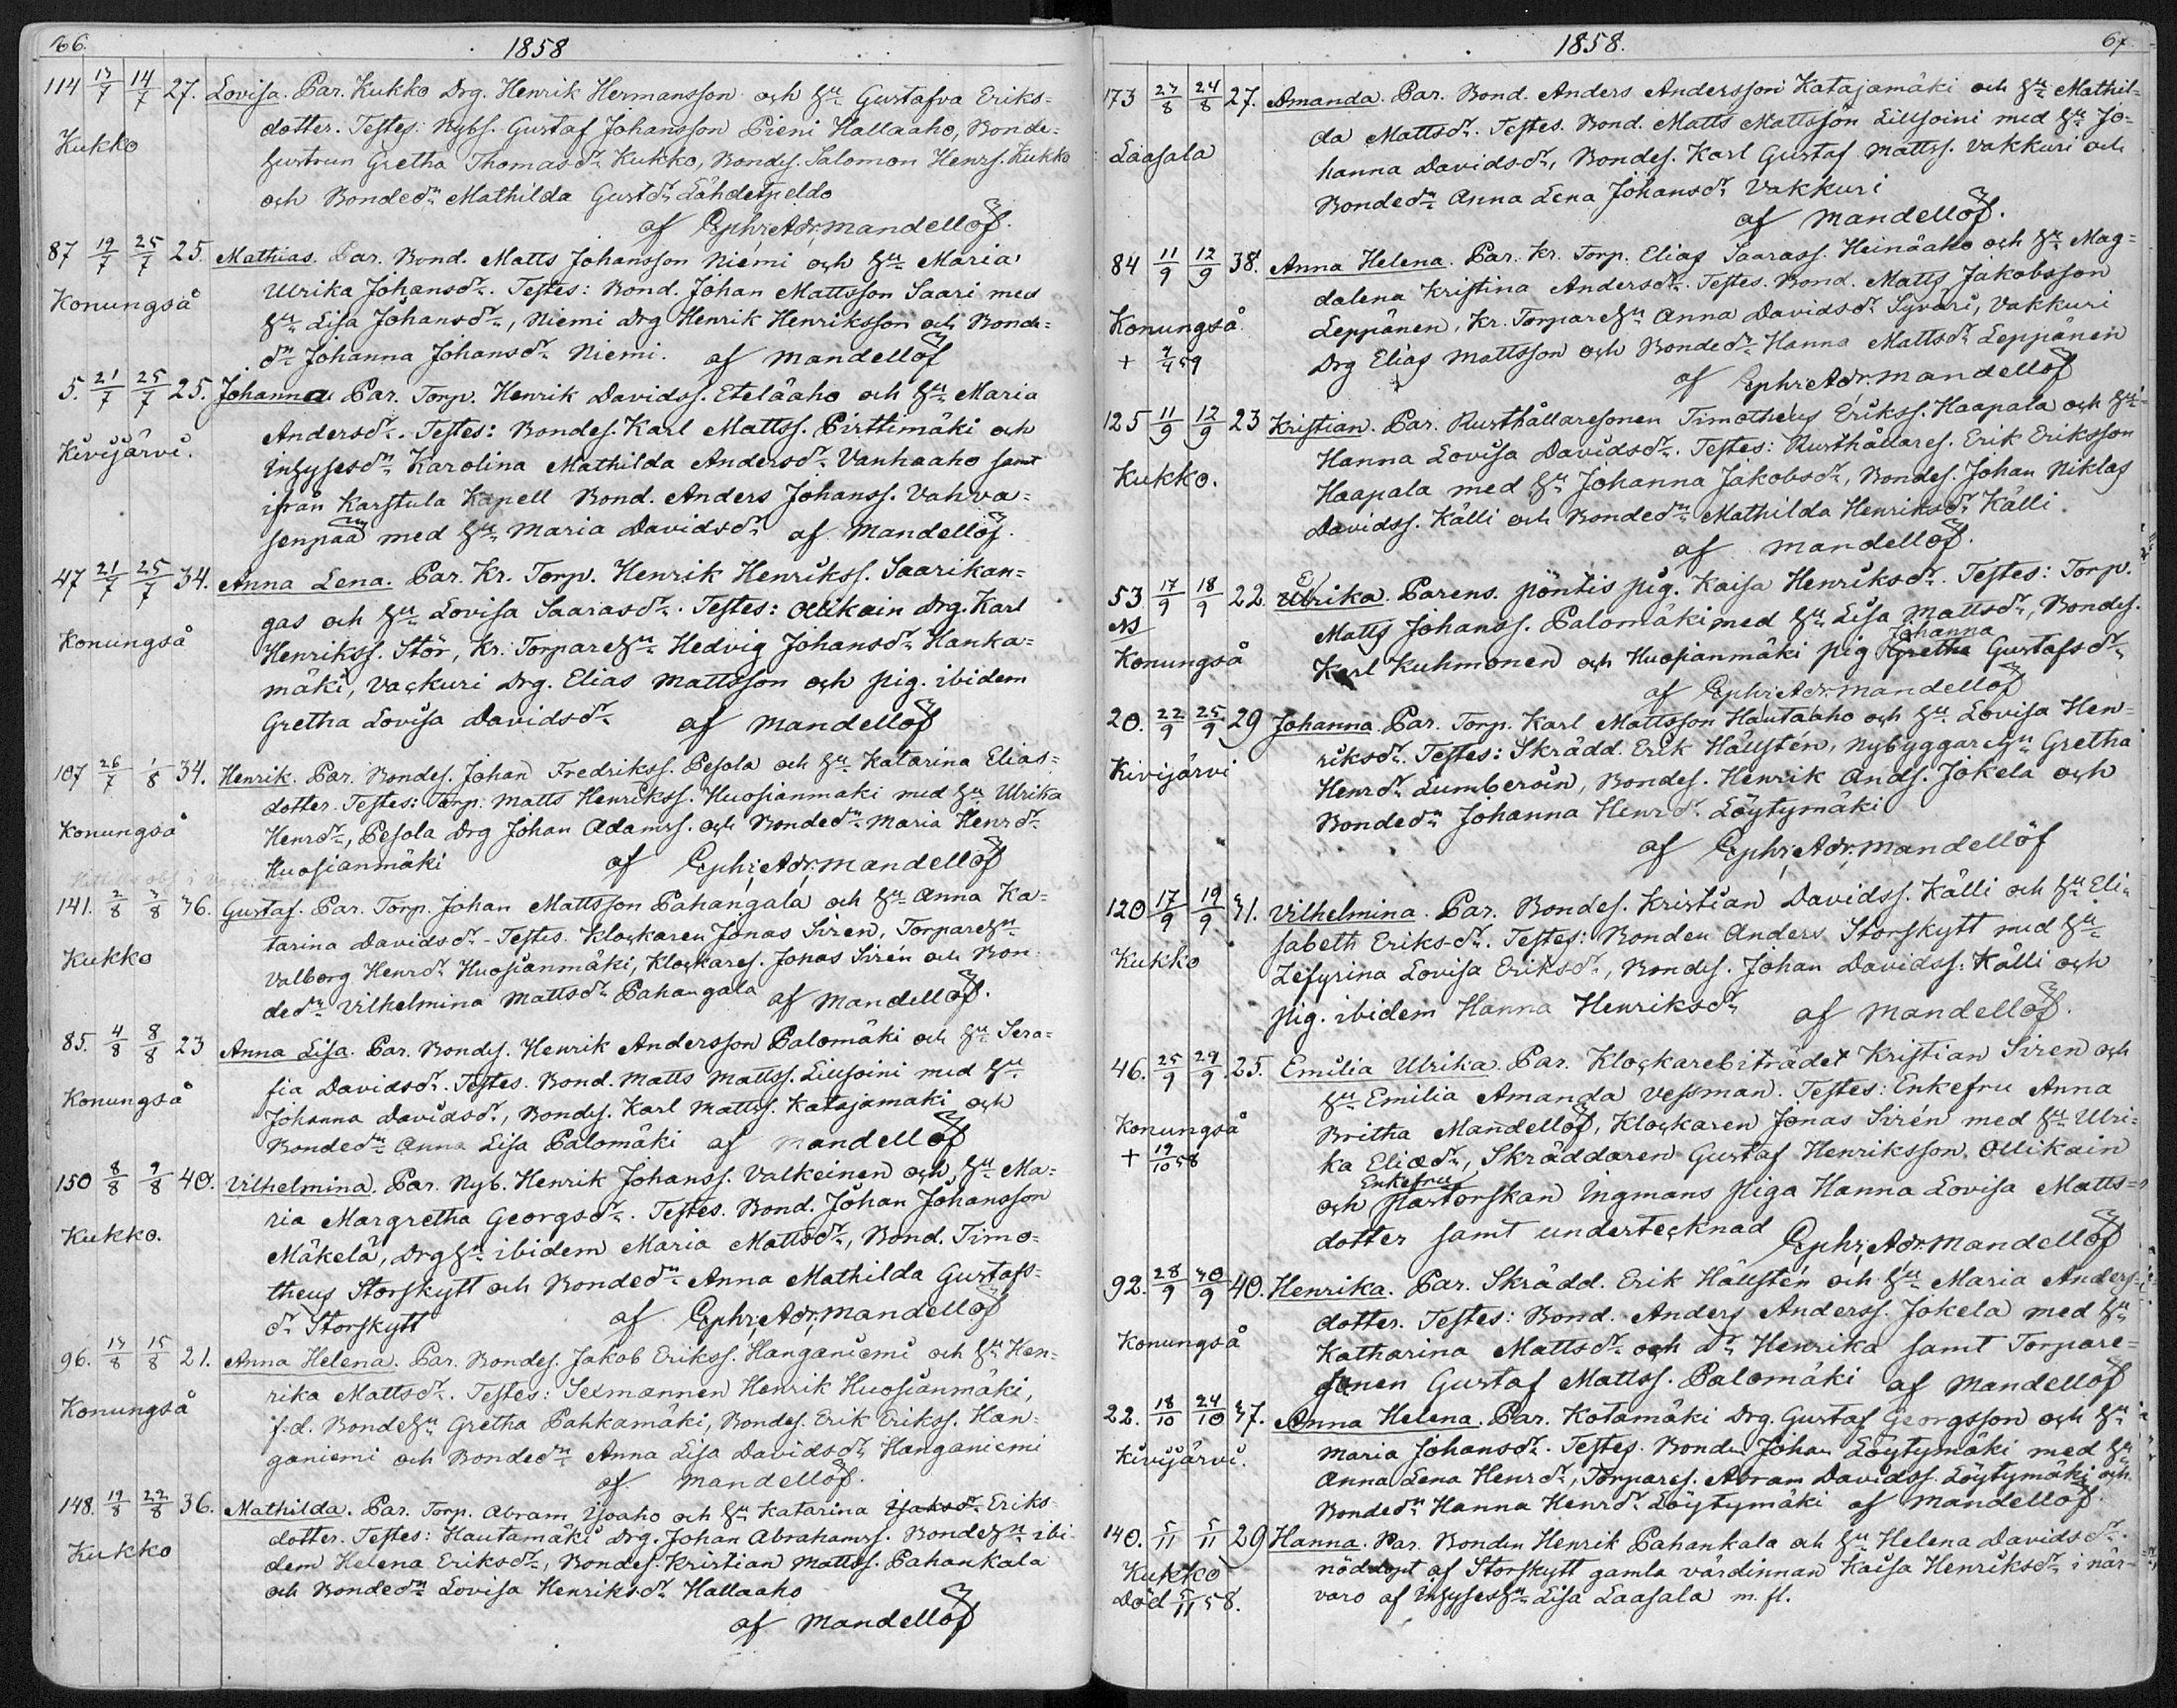 66.
1858
114 13/7 14/7 27. Lovisa. Par. Kukko Drg. Henrik Hermansson och hu Gustafva Eriks=
dotter. Testes: Nybs. Gustaf Johansson Pieni Hallaaho, Bonde=
Kukko
hustrun Gretha Thomasdr Kukko, Bondes. Salomon Henrs. Kukko
och Bondedn Mathilda Gustdr Lähdetpeldo
af Ephr: Adr: Mandellöf.
87 19/7 25/7 25. Mathias. Par. Bond. Matts Johansson Niemi och hu Maria
Ulrika Johansdr. Testes: Bond. Johan Mattsson Saari med
Konungså
hu Lisa Johansdr, Niemi Drg Henrik Henriksson och Bonde=
dn Johanna Johansdr Niemi. af Mandellöf
5. 21/7 25/7 25. Johanna Par. Torp. Henrik Davidss. Eteläaho och hu Maria
Andersdr. Testes: Bondes. Karl Mattss. Pirttimäki och
Kivijärvi.
Inhysesdn Karolina Mathilda Andersdr Vanhaaho samt
ifrån Karstula Kapell Bond. Anders Johanss. Vahva=
senpää med hu Maria Davidsdr af Mandellöf.
47 21/7 25/7 34. Anna Lena. Par. Kr. Torp. Henrik Henrikss. Saarikan=
gas och hu Lovisa Saarasdr. Testes: Ollikain Drg. Karl
Konungså
Henrikss. Stör, Kr. Torparehu Hedvig Johansdr Hanka=
mäki, Vackuri Drg. Elias Mattsson och pig. ibidem
Gretha Lovisa Davidsdr af Mandellöf
107 26/7 1/8 34. Henrik. Par. Bondes. Johan Fredrikss. Pesola och hu Katarina Elias=
dotter. Testes: Torp. Matts Henrikss. Huosianmäki med hu Ulrika
Konungså
Henrdr, Pesola Drg Johan Adamss. och Bondedn Maria Henrdr
Huosianmäki af Ephr: Adr: Mandellöf
141. 2/8 3/8 36. Gustaf. Par. Torp. Johan Mattsson Pahangala och hu Anna Ka=
tarina Davidsdr - Testes. Klockaren Jonas Siren, Torparehu
Kukko
Valborg Henrdr Huosianmäki, Klockares. Jonas Sirén och Bon=
dedn Vilhelmina Mattsdr Pahangala af Mandellöf.
85. 4/8 8/8 23 Anna Lisa. Par. Bondes. Henrik Andersson Palomäki och hu Sera=
fia Davidsdr. Testes. Bond. Matts Mattss. Lillsoini med hu
Konungså
Johanna Davidsdr, Bondes. Karl Mattss. Katajamäki och
Bondedn Anna Lisa Palomäki af Mandellöf
150 8/8 9/8 40. Vilhelmina. Par. Nyb. Henrik Johanss. Valkeinen och hu Ma=
ria Margretha Georgsdr. Testes. Bond. Johan Johansson
Kukko.
Mäkelä, Drghu ibidem Maria Mattsdr, Bond. Timo=
theus Storskytt och Bondedn Anna Mathilda Gustafs=
dr Storskytt af Ephr: Adr: Mandellöf
96. 13/8 15/8 21. Anna Helena. Par. Bondes. Jakob Erikss. Hanganiemi och hu Hen=
rika Mattsdr. Testes: Sexmannen Henrik Huosianmäki,
Konungså
f.d. Bondehu Gretha Pahkamäki, Bondes. Erik Erikss. Han=
ganiemi och Bondedn Anna Lisa Davidsdr Hanganiemi
af Mandellöf.
148. 19/8 22/8 36. Mathilda. Par. Torp. Abram Isoaho och hu Katarina Isaksdr Eriks=
dotter. Testes: Hautamäki Drg. Johan Abrahamss. Bondehu ibi=
Kukko
dem Helena Eriksdr, Bondes. Kristian Mattss. Pahankala
och Bondedn Lovisa Henriksdr Hallaaho
af Mandellöf
1858.
67.
173 23/8 24/8 27. Amanda. Par. Bond. Anders Andersson Katajamäki och hu Mathil=
da Mattsdr. Testes. Bond. Matts Mattsson Lillsoini med hu Jo=
Laasala
hanna Davidsdr, Bondes. Karl Gustaf Mattss. Vakkuri och
Bondedn Anna Lena Johansdr Vakkuri
af Mandellöf.
84 11/9 12/9 38. Anna Helena. Par. Kr. Torp. Elias Saarass. Heinäaho och hu Mag=
dalena Kristina Andersdr. Testes. Bond. Matts Jakobsson
Konungså
Leppänen, Kr. Torparehu Anna Davidsdr Syvari, Vakkuri
Drg Elias Mattsson och Bondedn Hanna Mattsdr Leppänen
af Ephr: Adr: Mandellöf
125 11/9 12/9 23 Kristian. Par. Rusthållaresonen Timotheus Erikss. Haapala och hu
Hanna Lovisa Davidsdr. Testes: Rusthållares. Erik Eriksson
Kukko.
Haapala med hu Johanna Jakobsdr, Bondes. Johan Niklas
Davidss. Källi och Bondedn Mathilda Henriksdr Källi.
af Mandellöf.
53 17/9 18/9 22. Ulrika. Parens. Pöntis pig. Kaisa Henriksdr. Testes: Torp.
Matts Johanss. Palomäki med hu Lisa Mattsdr, Bondes.
Konungså
Johanna
Karl Kuhmonen och Huosianmäki pig Gretha Gustafsdr
af Ephr: Adr: Mandellöf
20. 22/9 25/9 29 Johanna. Par. Torp. Karl Mattsson Hautaaho och hu Lovisa Hen=
riksdr. Testes: Skrädd. Erik Hällstén, Nybyggarehu Gretha
Kivijärvi
Henrdr Lumberoin, Bondes. Henrik Ands. Jokela och
Bondedn Johanna Henrdr Löytymäki
af Ephr: Adr: Mandellöf
120 17/9 19/9 31. Vilhelmina. Par. Bondes. Kristian Davidss. Källi och hu Eli=
sabeth Eriksdr. Testes: Bonden Anders Storskytt med hu
Kukko
Zefyrina Lovisa Eriksdr, Bondes. Johan Davidss. Källi och
pig. ibidem Hanna Henriksdr af Mandellöf.
46. 25/9 29/9 25. Emilia Ulrika. Par. Klockarebiträdet Kristian Siren och
hu Emilia Amanda Vessman. Testes: Enkefru Anna
Konungså
Britha Mandellöf, Klockaren Jonas Sirén med hu Ulri=
+ 19/10 58
ka Eliædr, Skräddaren Gustaf Henriksson Ollikain
Enkefru
och pastorskan Ingmans piga Hanna Lovisa Matts=
dotter samt undertecknad Ephr: Adr: Mandellöf
92. 28/9 30/9 40. Henrika. Par. Skrädd. Erik Hällstén och hu Maria Anders=
dotter. Testes: Bond. Anders Anderss. Jokela med hu
Konungså
Katharina Mattsdr och dr Henrika samt Torpare=
sonen Gustaf Mattss. Palomäki af Mandellöf
22. 18/10 24/10 37. Anna Helena. Par. Kotamäki Drg. Gustaf Georgsson och hu
Maria Johansdr. Testes. Bonden Johan Löytymäki med hu
Kivijärvi.
Anna Lena Henrdr, Torpares. Abram Davidss. Löytymäki och
Bondedn Hanna Henrdr Löytymäki af Mandellöf.
140. 5/11 5/11 29 Hanna. Par. Bonden Henrik Pahankala och hu Helena Davidsdr.
Kukko
nöddöpt af Storskytt gamla värdinnan Kaisa Henriksdr i när=
Död 5/11 58.
varo af Inhyseshu Lisa Laasala m. fl.